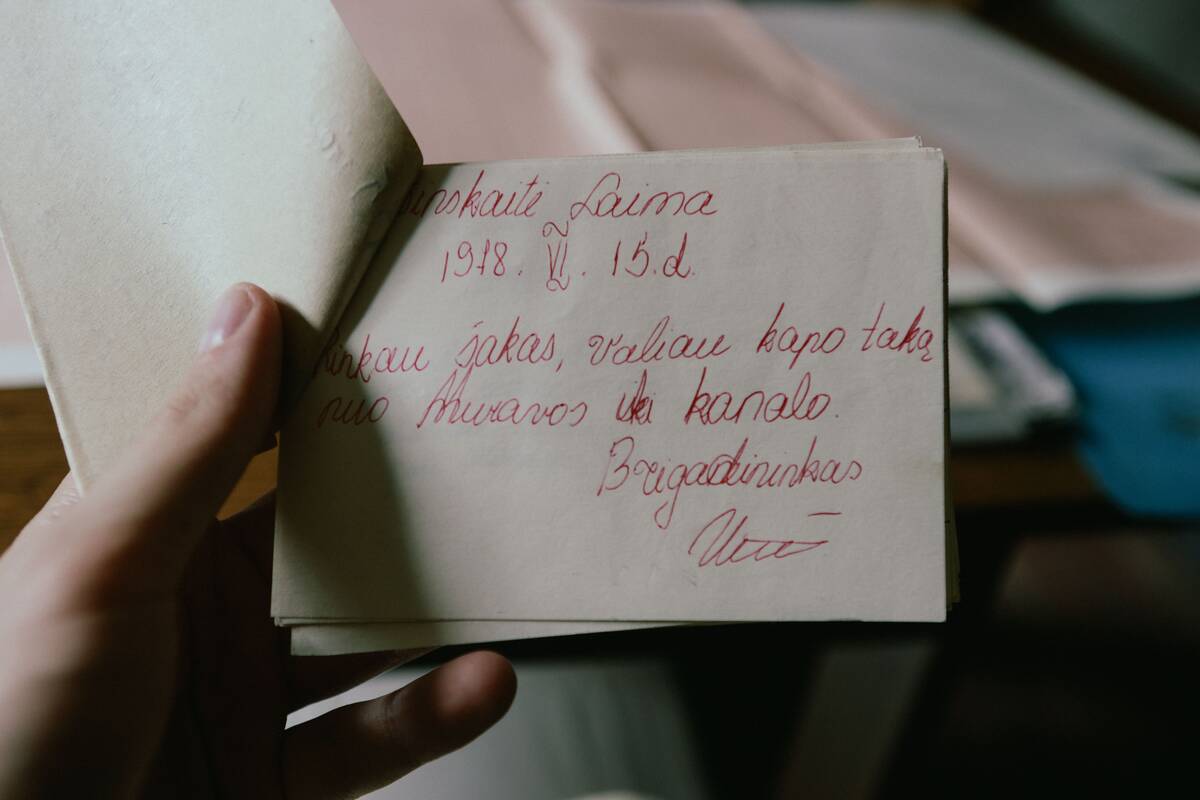 inskaitė Laima
1978. VI. 15.d.
inkau šakas, valiau kapo taką
nuo Muravos iki kanalo.
Brigadininkas